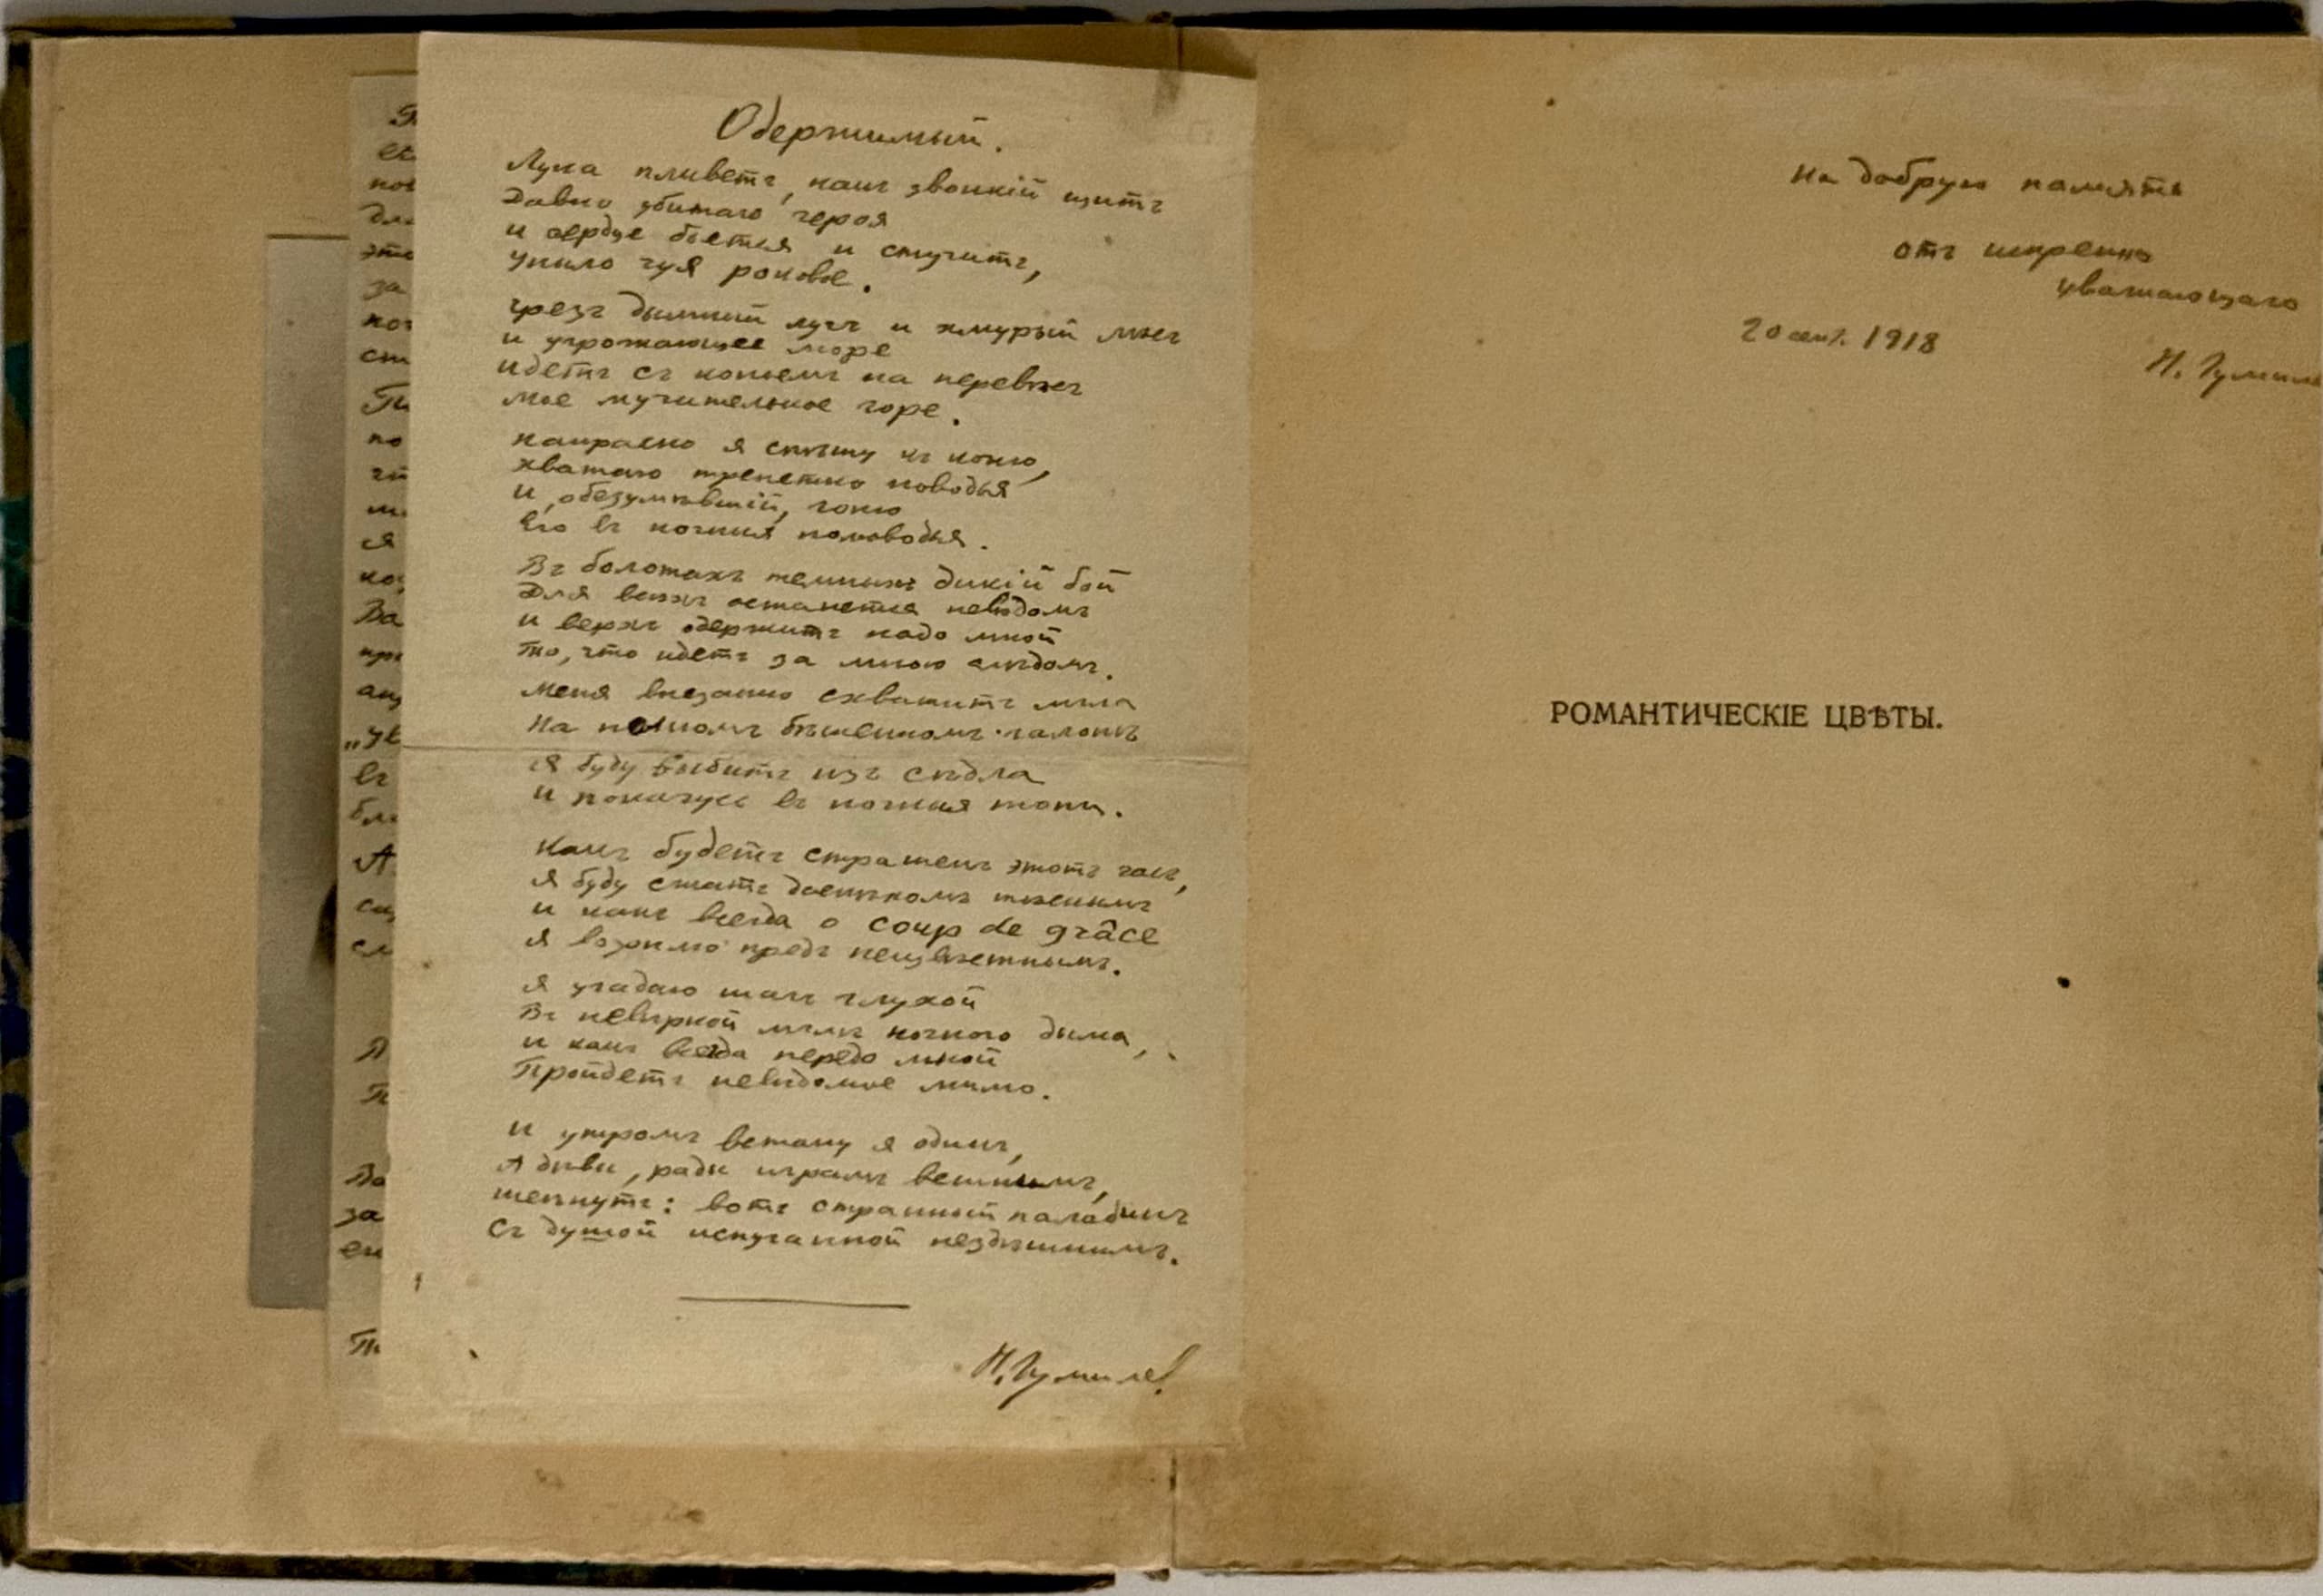 Одержимый.
Луна плыветъ, какъ звонкій щитъ
Давно убитаго героя
и сердце бьется и стучитъ,
уныло чуя роковое.
Чрезъ дымный лугъ и хмурый лѣсъ
и угрожающее море
идетъ съ копьемъ на перевѣсъ
мое мучительное горе.
напрасно я спѣшу къ коню,
хватаю трепетно поводья
и, обезумѣвшій, гоню
Его въ ночныя половодья.
Въ болотахъ темныхъ дикій бой
Для всѣхъ останется невѣдомъ
и верхъ одержитъ надо мной
то, что идетъ за мною слѣдомъ.
Меня внезапно схватитъ мгла
На полномъ бѣшенномъ галопѣ
я буду выбитъ изъ сѣдла
и покачусь въ ночныя топи.
Какъ будетъ страшенъ этотъ часъ,
я буду сжатъ доспѣхомъ тѣснымъ
и какъ всегда о coup de grâce
я возоплю предъ неизвѣстнымъ.
я угадаю шагъ глухой
Въ невѣрной мглѣ ночного дыма,
и какъ всегда передо мной
Пройдетъ невѣдомое мимо.
и утромъ встану я одинъ,
А дѣвы, рады играмъ вешнимъ,
шепнутъ: вотъ странный паладинъ
Съ душой испуганной нездѣшнимъ.
Н. Гумилев
ек
пот
дла
это
за
ког
ст
по
я
Ва
„ув
въ
А
сл
П
Во
за
ен
На добрую память
отъ искренно
уважающаго
20 сент. 1918
Н. Гумил
РОМАНТИЧЕСКІЕ ЦВѢТЫ.